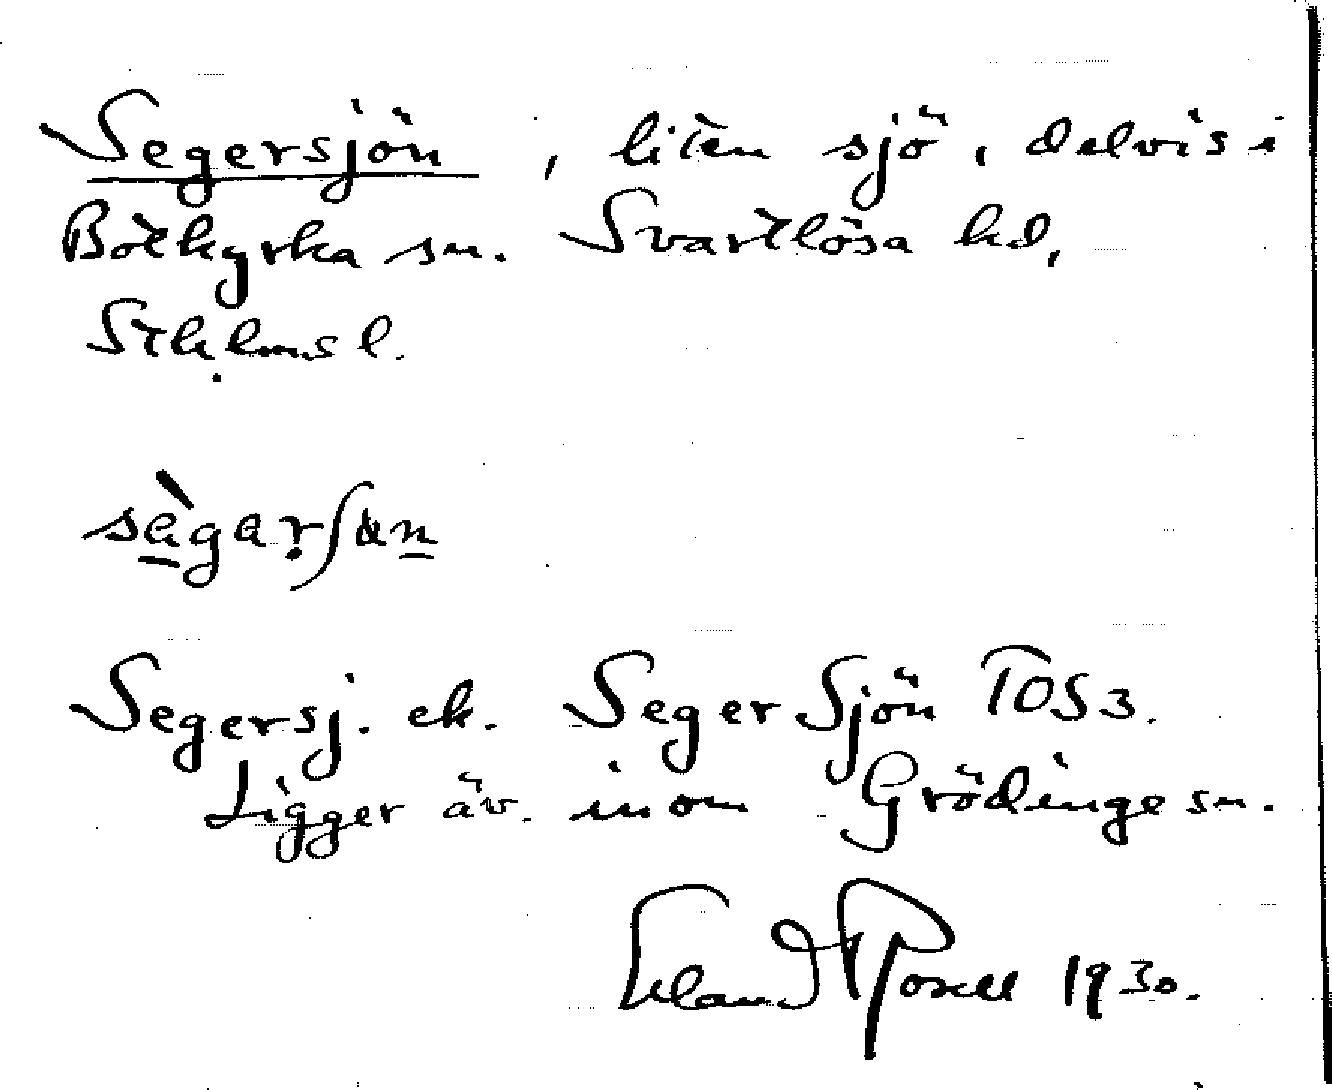 Segersjön, liten sjö, delvis i
Botkyrka sn. Svartlösa hd,
Sthlms l.
Segersj. ek. Seger Sjön TOS 3.
Ligger äv. inom Grödinge sn.
Erland Rosell 1930.